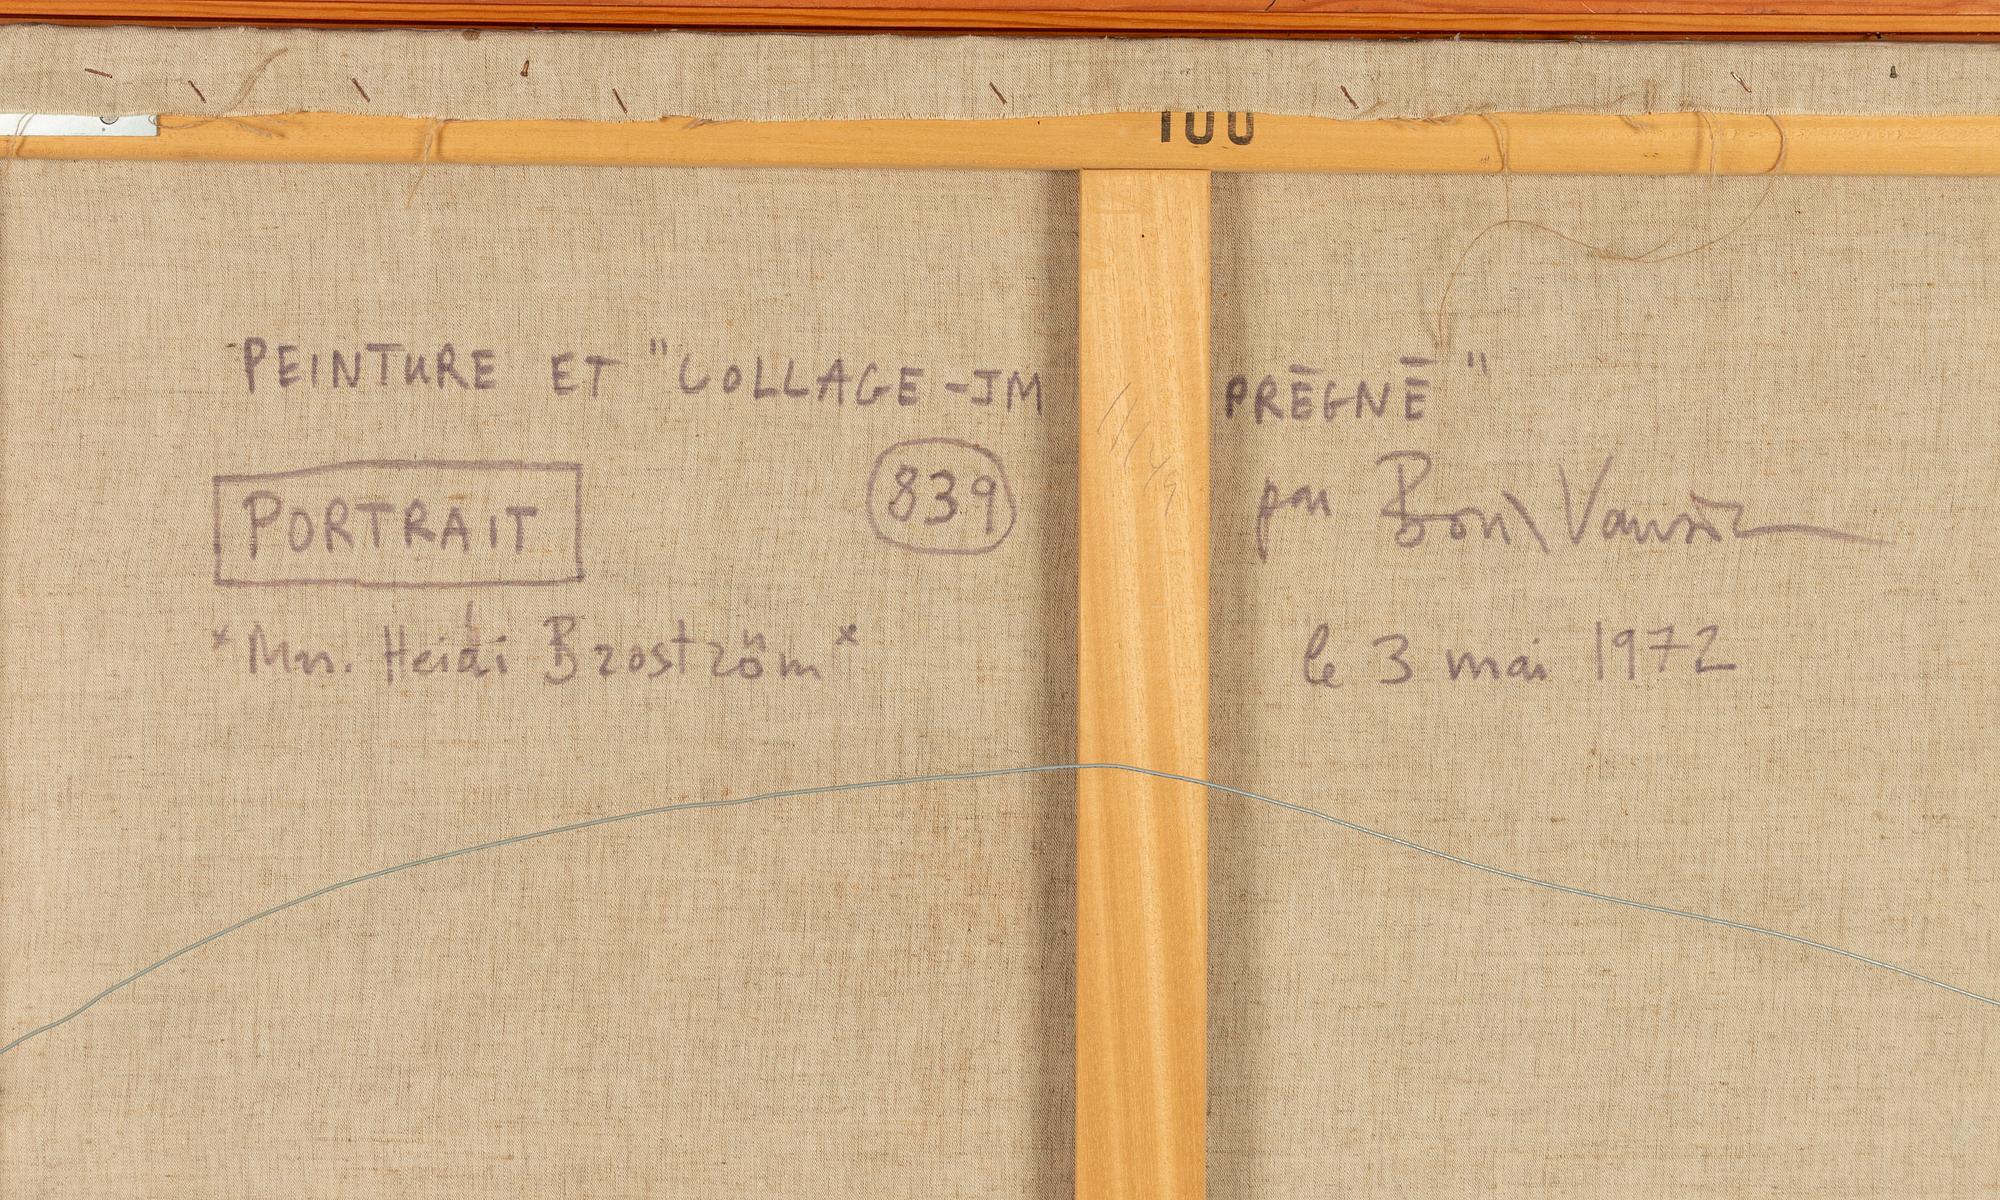 100
PEINTURE ET "COLLAGE-IMPRĒGNĒ"
PORTRAIT 839 par Ben Vautier
"Mrs. Heidi Broström"
le 3 mai 1972